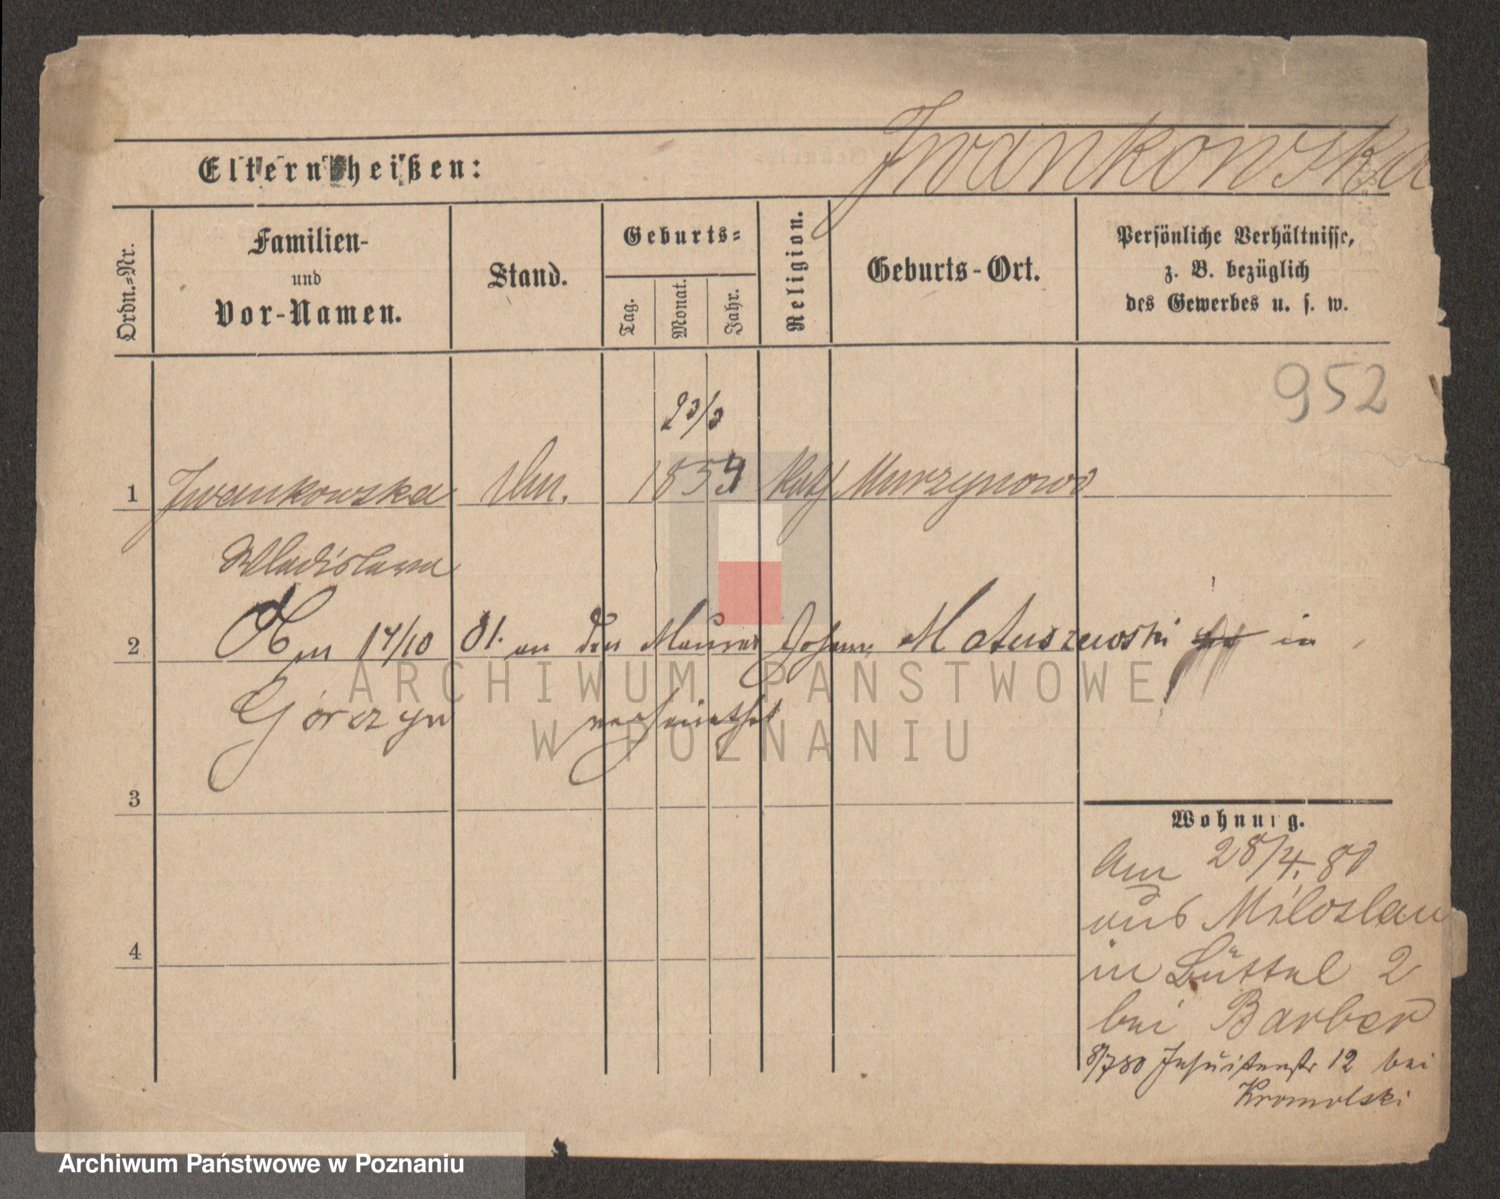 Iwankowska
Eltern heißen:
Ordn.-Nr.
Familien-
und
Vor-Namen.
Stand.
Geburts-
Tag.
Monat.
Jahr.
Religion.
Geburts-Ort.
Persönliche Verhältnisse,
z. B. bezüglich
des Gewerbes u. s. w.
952
23/3
1 Iwankowska 1859 Kath Murzynowo
Wladislawa
2 Am 17/10 81. an den Maurer Johann Matuszewski in
Górczyn verheirathet
3
4
Wohnung.
Am 28/4. 80
aus Miloslaw
in Büttel 2
bei Barber
8/7 80 Jesuitenstr 12 bei
Kromolski
ARCHIWUM PAŃSTWOWE
W POZNANIU
Archiwum Państwowe w Poznaniu